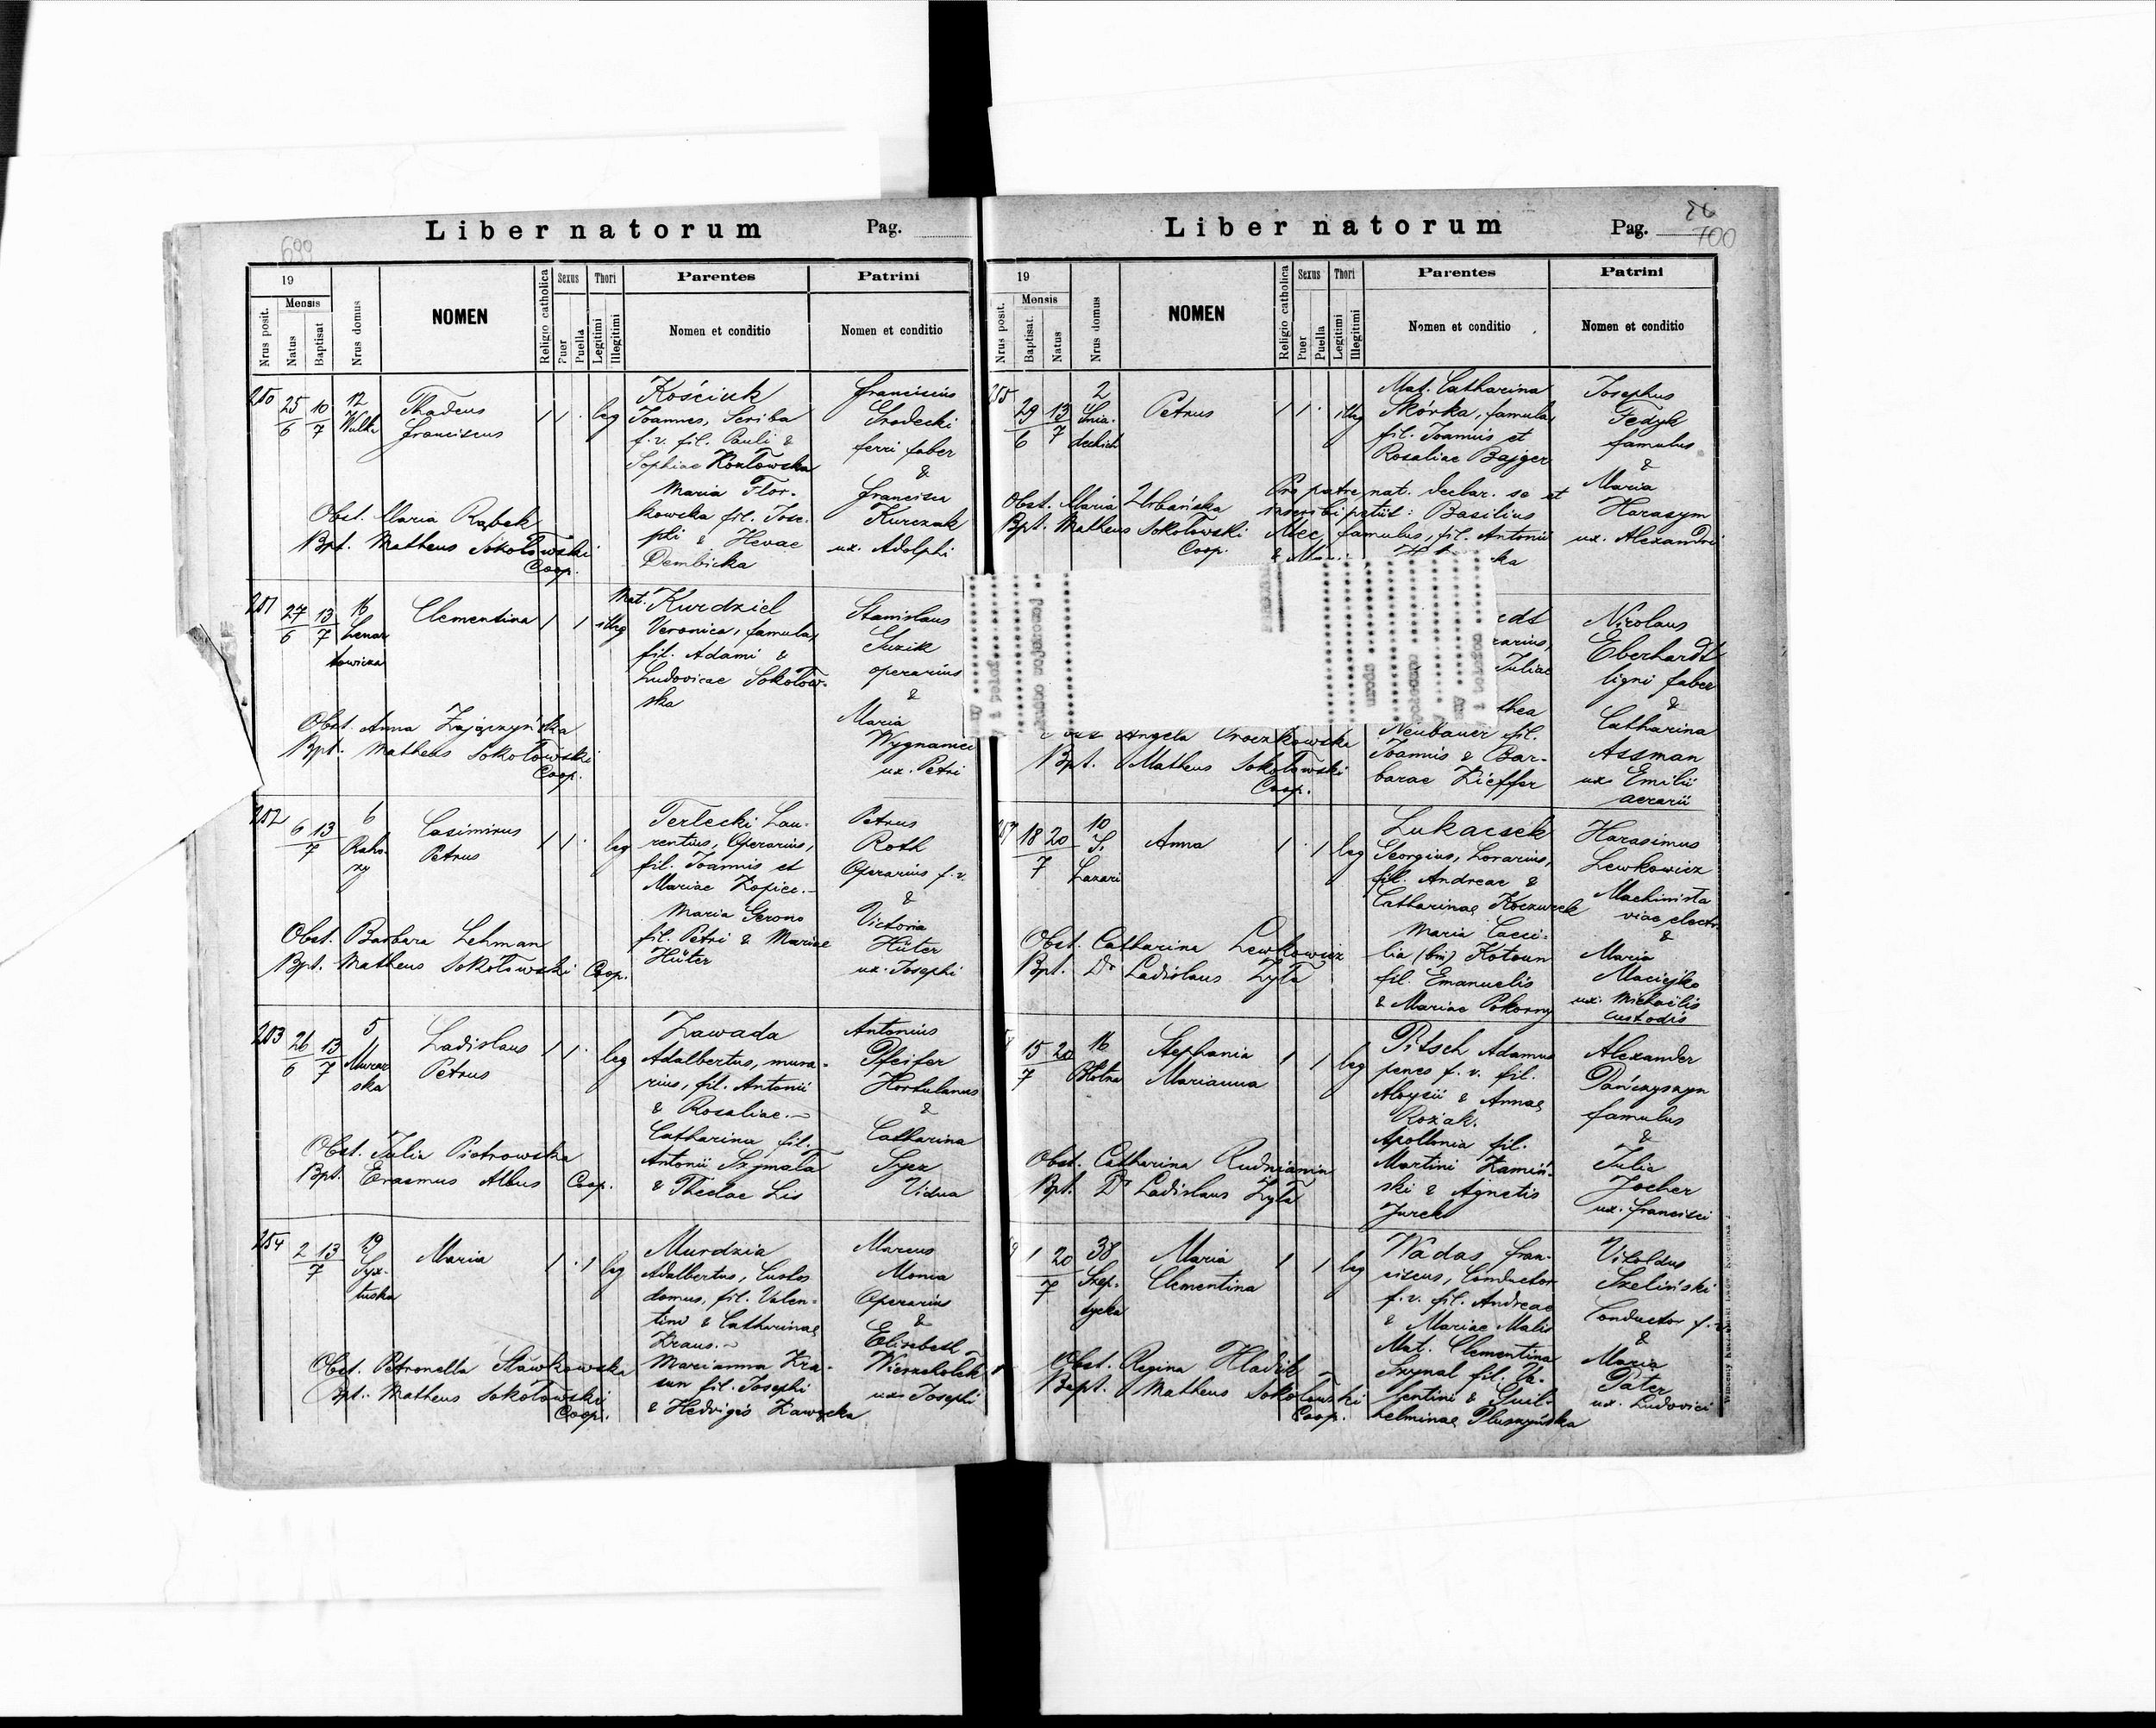 Liber natorum Pag.
699
19
Mensis
Nrus posit.
Natus
Baptisat
Nrus domus
NOMEN
Religio catholica
Sexus
Puer
Puella
Thori
Legitimi
Illegitimi
Parentes
Nomen et conditio
Patrini
Nomen et conditio
250 25/6 10/7 12
Thadeus
Franciscus
1 1 . leg
Kościuk
Joannes, Scriba
f.v. fil. Pauli &
Sophiae Kozłowska
Maria Flor-
kowska fil. Jose-
phi & Hevae
Dembicka
Franciscus
Grodecki
ferri faber
&
Francisca
Kurczak
ux. Adolphi
Obst. Maria Rąbek
Bpt. Matheus Sokołowski
Coop.
251 27/6 13/7 16
Lenar
towicza
Clementina
1 1 illeg
Mat. Kurdziel
Veronica, famula,
fil. Adami &
Ludovicae Sokołow-
ska
Stanislaus
Guzik
operarius
&
Maria
Wygnaniec
ux. Petri
Obst. Anna Zajączyńska
Bpt. Matheus Sokołowski
Coop.
252 6 13/7 6
Casimirus
Petrus
1 1 . leg
Terlecki Lau-
rentius, Operarius,
fil. Joannis et
Mariae Kopiec.-
Maria Gerono
fil. Petri & Mariae
Hüter
Petrus
Roth
Operarius f.v.
&
Victoria
Hüter
ux. Josephi
Obst. Barbara Lehman
Bpt. Matheus Sokołowski Coop.
253 26/6 13/7 5
Murar
ska
Ladislaus
Petrus
1 1 . leg
Zawada
Adalbertus, mura-
rius, fil. Antonii
& Rosaliae.-
Catharina fil.
Antonii Szymała
& Theclae Lis
Antonius
Pfeifer
Hortulanus
&
Catharina
Sycz
Vidua
Obst. Julia Piotrowska
Bpt. Erasmus Albus Coop.
254 2 13/7 29
Syx-
tuska
Maria
1 . 1 leg
Murdzia
Adalbertus, Custos
domus, fil. Valen-
tini & Catharinae
Kraus.-
Marianna Kra-
sun fil. Josephi
& Hedvigis Zawzska
Marcus
Monia
Operarius
&
Elisabeth
Wierzchołek
ux. Josephi
Obst. Petronella Sławkowska
Bpt. Matheus Sokołowski
Coop.
Liber natorum Pag. 26
700
19
Mensis
Nrus posit.
Baptisat.
Natus
Nrus domus
NOMEN
Religio catholica
Sexus
Puer
Puella
Thori
Legitimi
Illegitimi
Parentes
Nomen et conditio
Patrini
Nomen et conditio
255 29/6 13/7 2
Śnia-
deckich
Petrus
1 1 . illeg
Mat. Catharina
Skórka, famula,
fil. Joannis et
Rosaliae Bajger
Pro patre nat. declar. se et
inscribi petiit: Basilius
Mec, famulus, fil. Antonii
Josephus
Fedyk
famulus
&
Maria
Harasym
ux. Alexandri
Obst. Maria Urbańska
Bpt. Matheus Sokołowski
Coop.
Juliae
Neubauer fil.
Joannis & Bar-
barae Kieffer
Nicolaus
Eberhardt
ligni faber
&
Catharina
Assman
ux. Emilii
aerarii
Angela Proczkowska
Bpt. Matheus Sokołowski
Coop.
18 20/7 10
S.
Lazari
Anna
1 . 1 leg
Lukacsek
Georgius, Lorarius,
fil. Andreae &
Catharinae Koczurek
Maria Caeci-
lia (bin) Kotoun
fil. Emanuelis
& Mariae Pokorny
Harasimus
Lewkowicz
Machinista
viae electr.
&
Maria
Maciejko
ux. Michaëlis
custodis
Obst. Catharina Lewkowicz
Bpt. Dr Ladislaus Żyła
15 20/7 16
Błotna
Stephania
Marianna
1 1 leg
Pitsch Adamus
penes f.v. fil.
Aloysii & Annae
Rożak.
Apollonia fil.
Martini Kamiń-
ski & Agnetis
Jurek
Alexander
Pańczyszyn
famulus
&
Julia
Jocher
ux. Francisci
Obst. Catharina Rudnianin
Bpt. Dr Ladislaus Żyła
1 20/7 38
Szep-
tycka
Maria
Clementina
1 1 leg
Wadas Fran-
ciscus, Conductor
f.v. fil. Andreae
& Mariae Malis
Mat. Clementina
Szynal fil. Va-
lentini & Guil-
helminae Pluszyńska
Vitoldus
Szeliński
Conductor f.v.
&
Maria
Pater
ux. Ludovici
Obst. Regina Hladik
Bapt. Matheus Sokołowski
Coop.